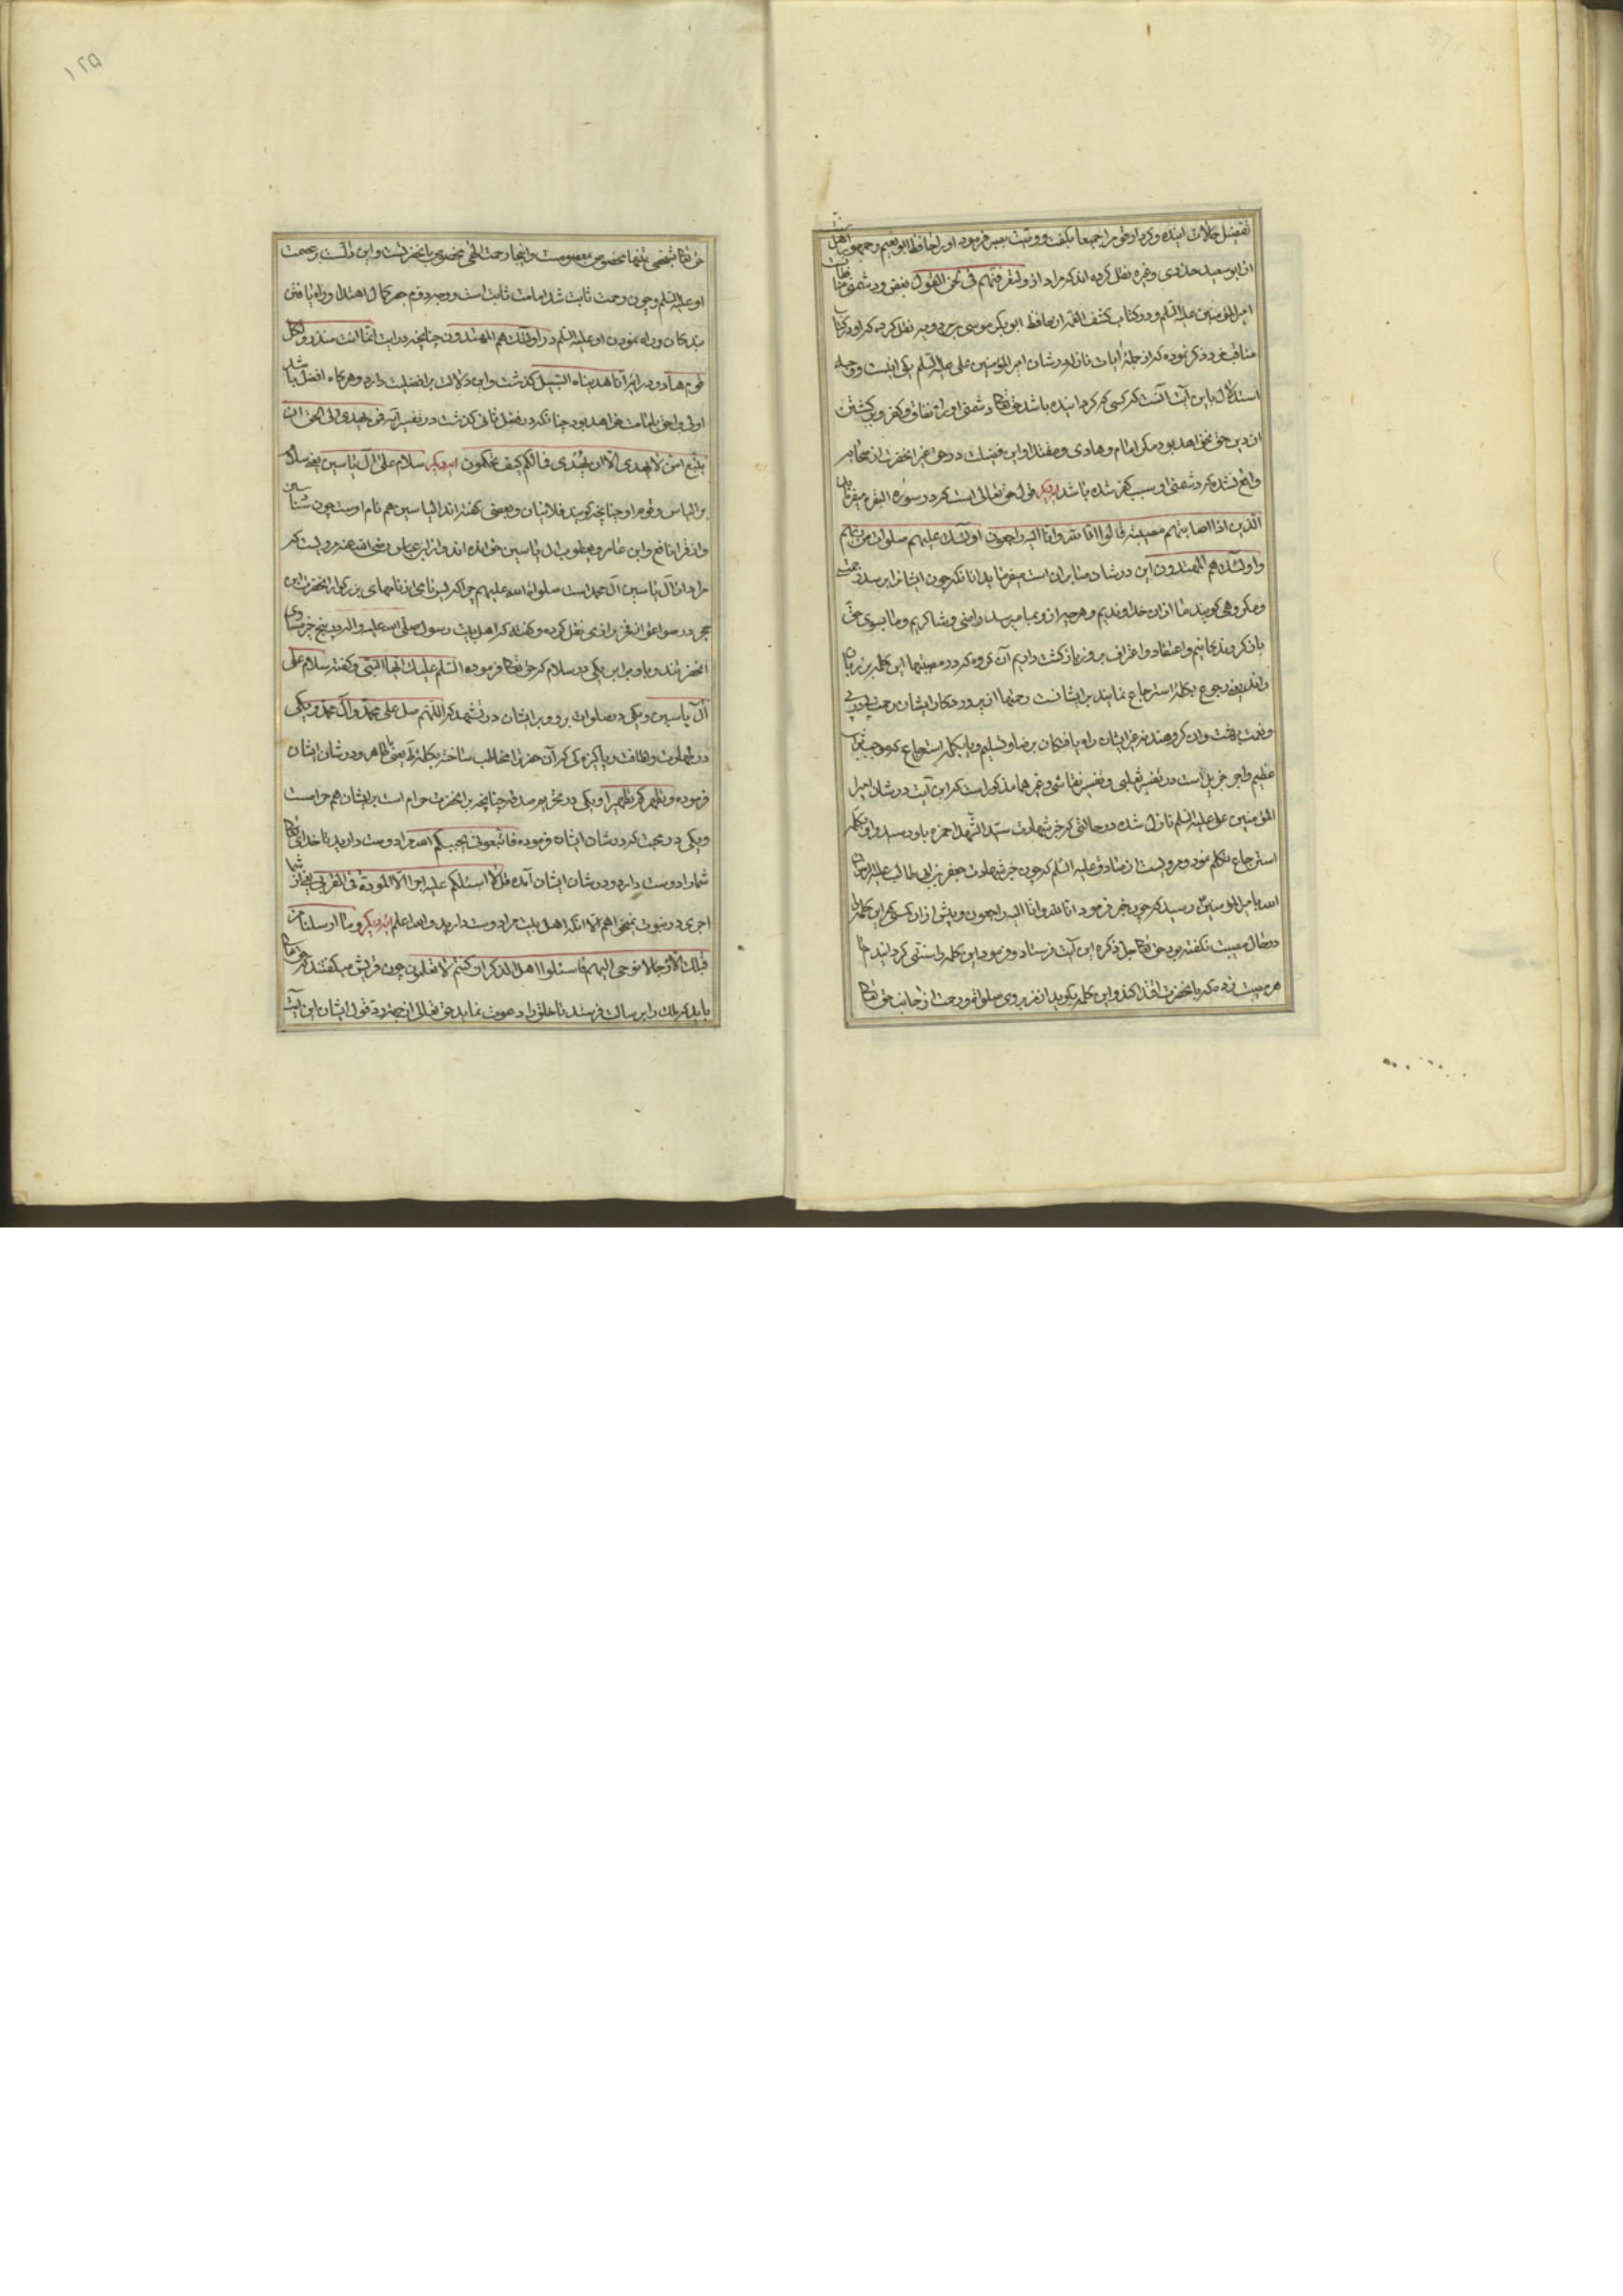 تفضیل حالات اینده و کردار
از ابو سعید خدری و غیره نقل کرده اند که مراد از ولتعرفنهم فی لحن القول بغض و دشمنی
امیر المؤمنین علیه السلم و در کتاب کشف الغمه از حافظ ابو بکر موسی بن مردویه نقل کرده که او در کتاب
مناقب خود ذکر نموده که از جمله آیات نازله در شان امیر المؤمنین علی علیه السلم یکی اینست و وجه
استدلال باین آیت آنست که کسی که کرد انیده باشد حق تعالی دشمنی او را نفاق و کفر و برگشتن
از دین حق نخواهد بود مگر امام و هادی و مقتدا و این فضیلت در حق غیر انحضرت از صحابه
واقع نشده که دشمنی او سبب کفر شده باشد ایه دیگر قول حق تعالی است که در سوره البقره میفرماید
الذین اذا اصابتهم مصیبة قالوا انا لله وانا الیه راجعون اولئك علیهم صلوات من ربهم
واولئك هم المهتدون این در شان صابران است میفرماید انانکه چون ایشانرا برسد
ومکروهی کویند ما ازان خداوندیم و هرچه از و بما میرسد راضی و شاکریم و ما بسوی حق
باز کردندکانیم و اعتقاد و اعتراف بروز بازکشت داریم آن کروه که در مصیبتها این کلمه بر زبان
رانند یعنی رجوع بکلمه استرجاع نمایند بر ایشانست رحمتها از پروردکار ایشان
و نعمت و ان کروهند نه غیر ایشان راه یافتکان برضا و تسلیم و یا بکلمه استرجاع که موجب ثواب
عظیم و اجر جزیل است در تفسیر ثعلبی و تفسیر نقاشی و غیرهما مذکور است که این آیت در شان امیر
المؤمنین علی علیه السلم نازل شده در حالتی که خبر شهادت سید الشهدا حمزه باو رسید و او بکلمه
استرجاع تکلم نمود و مرویست از صادق علیه السلم که چون خبر شهادت جعفر بن ابی طالب علیه
الله بامیر المؤمنین رسید که چون خبر فرمود انا لله وانا الیه راجعون و پیش ازان کسی این کلمه را
در حال مصیبت نکفته بود حق تعالی جل ذکره این آیت فرستاد و فرمود این کلمه را سنتی کردانید
هر مصیبت زده که بانحضرت اقتدا کند و این کلمه بکوید از نیز بروی صلوات و رحمت از جانب حق تعالی
حق تعالی شخصی تنها مخصوص معصومست و اینجا رحمت الهی مخصوص بانحضرتست و این دلالت بر عصمت
او علیه السلم و چون رحمت ثابت شد امامت ثابت است و وجه دوم جهة کمال اهتدا و راه یافتن
بندکان و راه نمودن او علیه السلم در اولئك هم المهتدون چنانچه در ایت انما انت منذر ولکل
قوم هاد و در ایه انا هدیناه السبیل کذشت و این دلالت بر افضلیت دارد و هرکاه افضل باشد
اولی و احق بامامت خواهد بود چنانکه در فصل ثانی کذشت در تفسیر آیه فمن یهدی الی الحق احق ان
یتبع امن لا یهدی الا ان یهدی فما لکم کیف تحکمون ایه دیگر سلام علی آل یاسین یعنی سلام
بر الیاس و قوم او چنانچه کویند فلانیان و بعضی کفته اند الیاسین هم نام اوست چون سینا و سینین
و از قرا نافع و ابن عامر و یعقوب ال یاسین خوانده اند و از ابن عباس رضی الله عنه مرویست که
مراد از آل یاسین آل محمد است صلوات الله علیهم چرا که یس نامی از نامهای بزرکوار انحضرت ابن
حجر در صواعق از فخر رازی نقل کرده و کفته که اهل بیت رسول صلی الله علیه و اله در پنج چیز مساوی
انحضرتند و باو برابر یکی در سلام که حق تعالی فرموده السلم علیك ایها النبی و کفته سلام علی
آل یاسین و یکی در صلوات بر و و بر ایشان در تشهد که اللهم صل علی محمد وآل محمد و یکی
در طهارت و نظافت و پاکیزه کی که آن حضرترا مخاطب ساخته بکلمه طه یعنی یا طاهر و در شان ایشان
فرموده ویطهرکم تطهیرا و یکی در تحریم صدقه چنانچه بر انحضرت حرام است بر ایشان هم حرامست
ویکی در محبت که در شان ایشان فرموده فاتبعونی یحببکم الله مرا دوست دارید تا خدای تعالی
شمارا دوست دارد و در شان ایشان آمده قل لا اسئلکم علیه اجرا الا المودة فی القربی یعنی از شما
اجری در نبوت نمیخواهم الا انکه اهل بیت مرا دوست دارید والله اعلم ایه دیگر وما ارسلنا من
قبلك الا رجالا نوحی الیهم فاسئلوا اهل الذکر ان کنتم لا تعلمون چون قریش میکفتند که حق تعالی
باید که ملك را برسالت فرستد تا خلق را دعوت نماید حق تعالی از جهة رد قول ایشان این آیت
۱۲۵